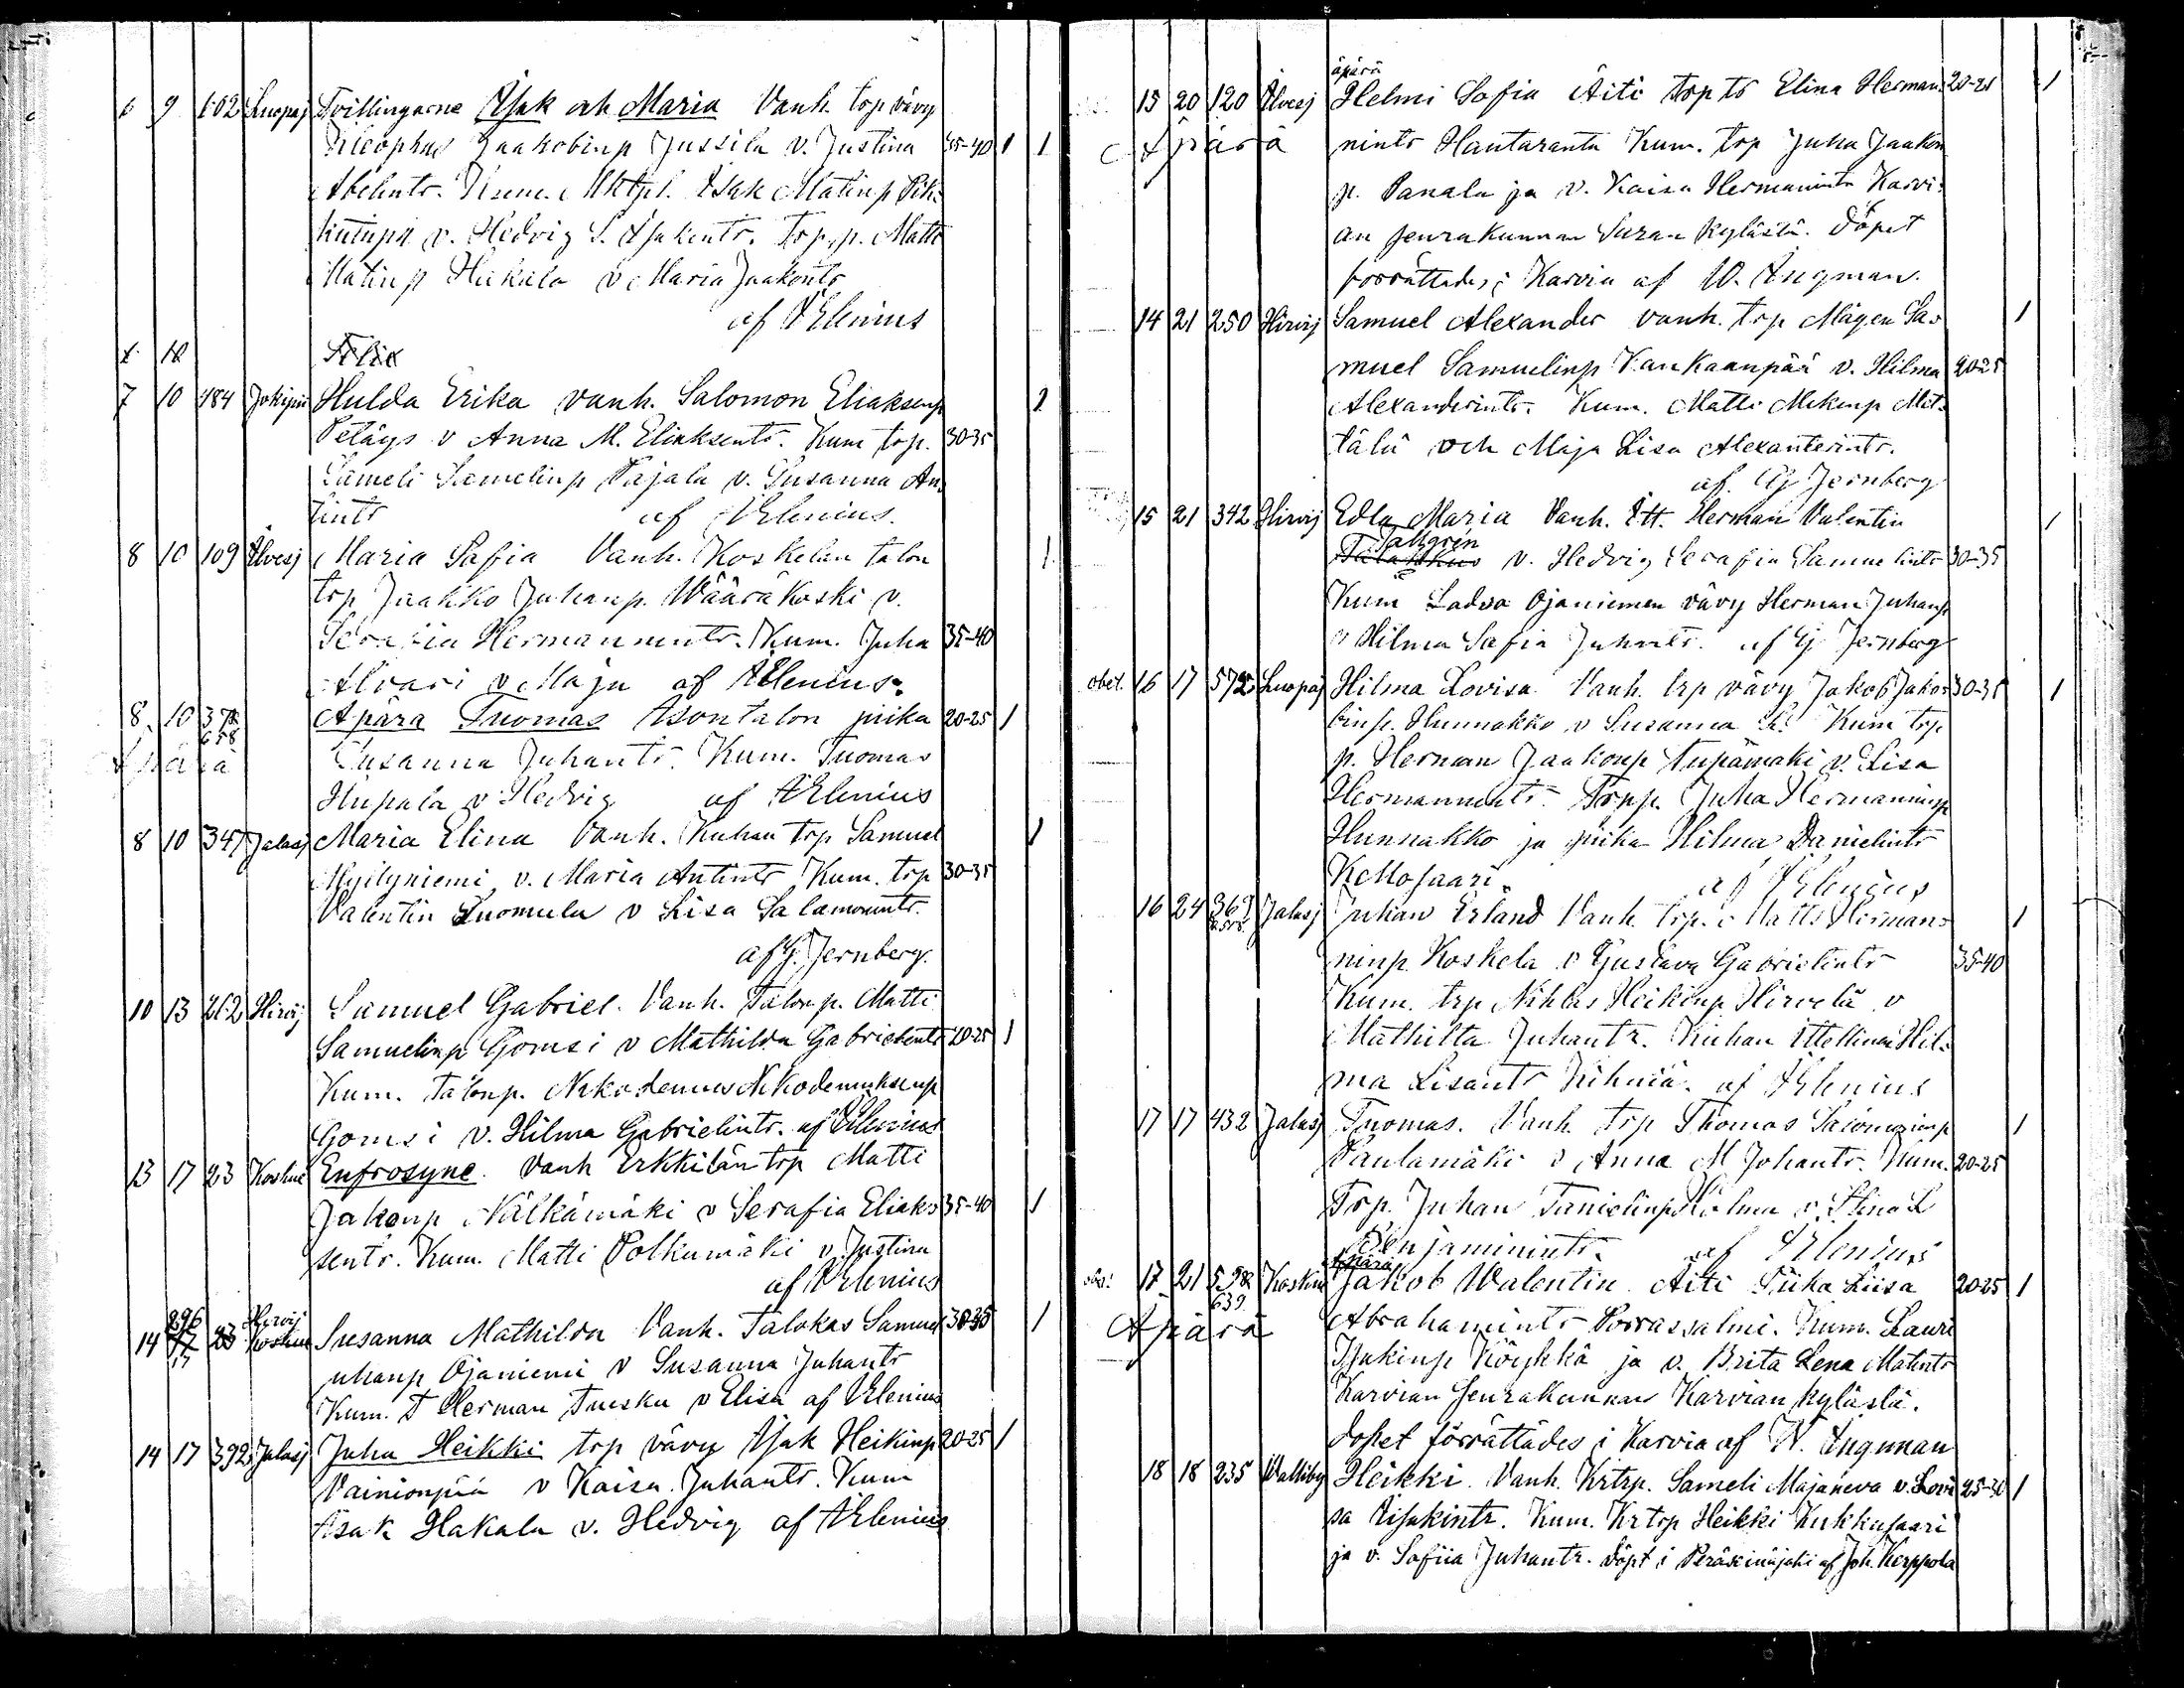 6 9 602 Luopaj Tvillingarne Isak och Maria Vanh. trp vävy
Kleophas Jaakobinp Jussila v. Justina 35-40 1 1
Abelintr. Kum. Isak Matinp
v. Hedvig S. Isakintr. Trp.p. Matti
Matinp Hakala v Maria Jaakontr
af Elenius
10
7 10 484 Jokipii Hulda Erika Vanh. Salomon Eliaksenp 1
Petäys v Anna M. Eliaksentr. Kum trp. 30-35
Sameli Samelinp Pajala v. Susanna An-
tintr af Elenius.
8 10 109 Ilvesj Maria Safia Vanh. Koskelan talon 1
trp Jaakko Juhanp. Wääräkoski v.
Serafia Hermanninntr. Kum. Juha 35-40
Alvari v Maja af Elenius.
8 10 378 Apära Tuomas talon piika 20-25 1
658
Apärä Susanna Juhantr. Kum. Tuomas
Hupala v Hedvig af Elenius
8 10 347 Jalasj Maria Elina Vanh. Kuhan trp Samuel 1
Myllyniemi v. Maria Antintr Kum. trp 30-35
Valentin Luomula v Lisa Salamonintr.
af G. Jernberg.
10 13 262 Hirvij Samuel Gabriel. Vanh. Talonp. Matti
Samuelinp Gomsi v Mathilda Gabrielintr 20-25 1
Kum. talonp. Nikodemus Nikodemuksenp
Gomsi v. Hilma Gabrielintr. af Elenius
13 17 23 Koskue Eufrosyne. Vanh Erkkilän trp Matti
Jakonp Nälkämäki v Serafia Eliak- 35-40 1
sentr. Kum. Matti Polkumäki v. Justina
af Elenius
296 Hirvij
14 17 23 Koskue Susanna Mathilda Vanh. Talokas Samuel 30-35 1
17 Juhanp Ojaniemi v Susanna Juhantr
Kum. T Herman Tuesku v Elisa af Elenius
14 17 392 Jalasj Juha Heikki trp vävy Isak Heikinp 20-25 1
Vainionpää v Kaisa Juhantr. Kum
Isak Hakala v. Hedvig af Elenius
äpärä
15 20 120 Ilvesj Helmi Sofia Äiti trp tr Elina Herman 20-21 1
Apärä nintr Hautaranta Kum. trp Juha Jaakon
p. Panala ja v. Kaisa Hermanintr Karvi-
an seurakunnan Saran kylästä. Döpet
förrättades i Karvia af W. Ingman.
14 21 250 Hirvij Samuel Alexander vanh. trp Mäyen Sa- 1
muel Samuelinp Kankaanpää v. Hilma 20-25
Alexanderintr. Kum. Matti Mikinp Met-
tälä och Maja Lisa Alexanterintr.
af Gj Jernberg
15 21 342 Hirvij Edla Maria Vanh. Itt. Herman Valentin 1
Sallgrén
v. Hedvig Serafia Samuelintr 30-35
Kum Ladva Ojaniemen vävy Herman Juhanp
v Hilma Safia Juhantr. af Gj Jernberg
obet. 16 17 572 Luopaj Hilma Lovisa Vanh. trp vävy Jakob Jako- 30-35 1
binp. Hunnakko v Susanna Kum trp.
p. Herman Jaakonp Tupämäki v. Lisa
Hermanninntr. Trpp. Juha Hermanninp
Hunnakko ja piika Hilma Danielintr
Kellosaari. af Elenius
16 24 369 Jalasj Juhan Erland Vanh. trp. Matts Herman- 1
ninp. Koskela v Gustava Gabrielintr 35-40
Kum. trp Niklas Heikinp Hirvelä v
Mathilta Juhantr. Kuhan Ittellinen Hil-
ma Lisantr Kihniä. af Elenius
17 17 432 Jalasj Tuomas. Vanh. trp Thomas Salomoninp 1
Vaulamäki v Anna M Johantr. Kum. 20-25
Trp. Juhan Tanielinp v. Stina L
Benjaminintr. af Elenius
Apärä
obs! 17 21 598 Koskue Jakob Walentin Äiti Piika Liisa 20-25 1
639
Apärä Abrahamintr Porrassalmi. Kum. Lauri
Isakinp Köykkä ja v. Brita Lena Matintr
Karvian seurakunnan Karvian kylästä.
Dopet förrättades i Karvia af W. Ingman
18 18 235 Walliby Heikki. Vanh. Krtrp. Sameli Majaneva v. Lovi- 25-30 1
sa Iisakintr. Kum. Krtrp Heikki Kukkusaari
ja v. Sofiia Juhantr. Döpt i Peräseinäjoki af Joh. Kerppola